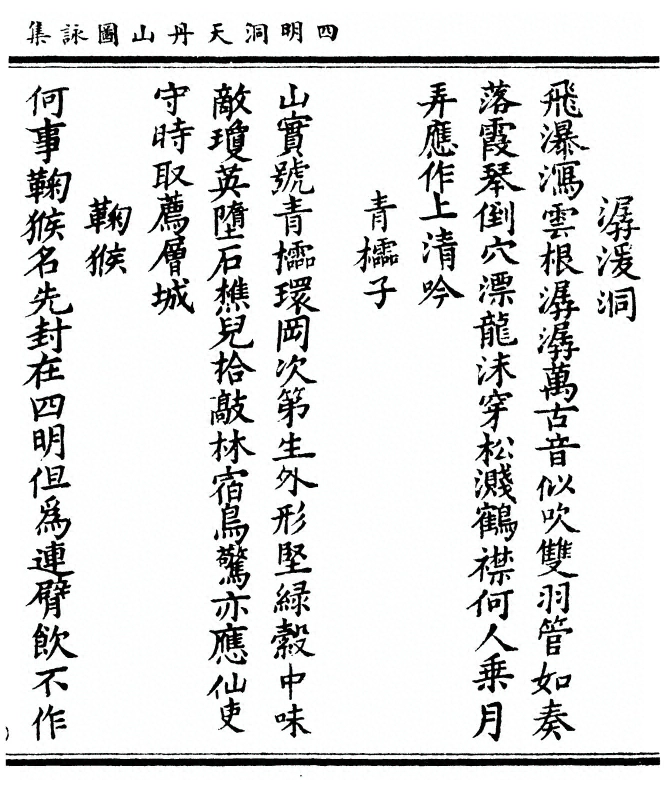 四明洞天丹山圖詠集
潺湲洞
飛瀑瀉雲根潺潺萬古音似吹雙羽管如奏
落霞琴倒穴漂龍沫穿松濺鶴襟何人乗月
弄應作上清吟
青櫺子
山實號青櫺環岡次第生外形堅綠殼中味
敵瓊英墮石樵兒拾敲林宿鳥驚亦應仙吏
守時取薦層城
鞠猴
何事鞠猴名先封在四明但爲連臂飲不作